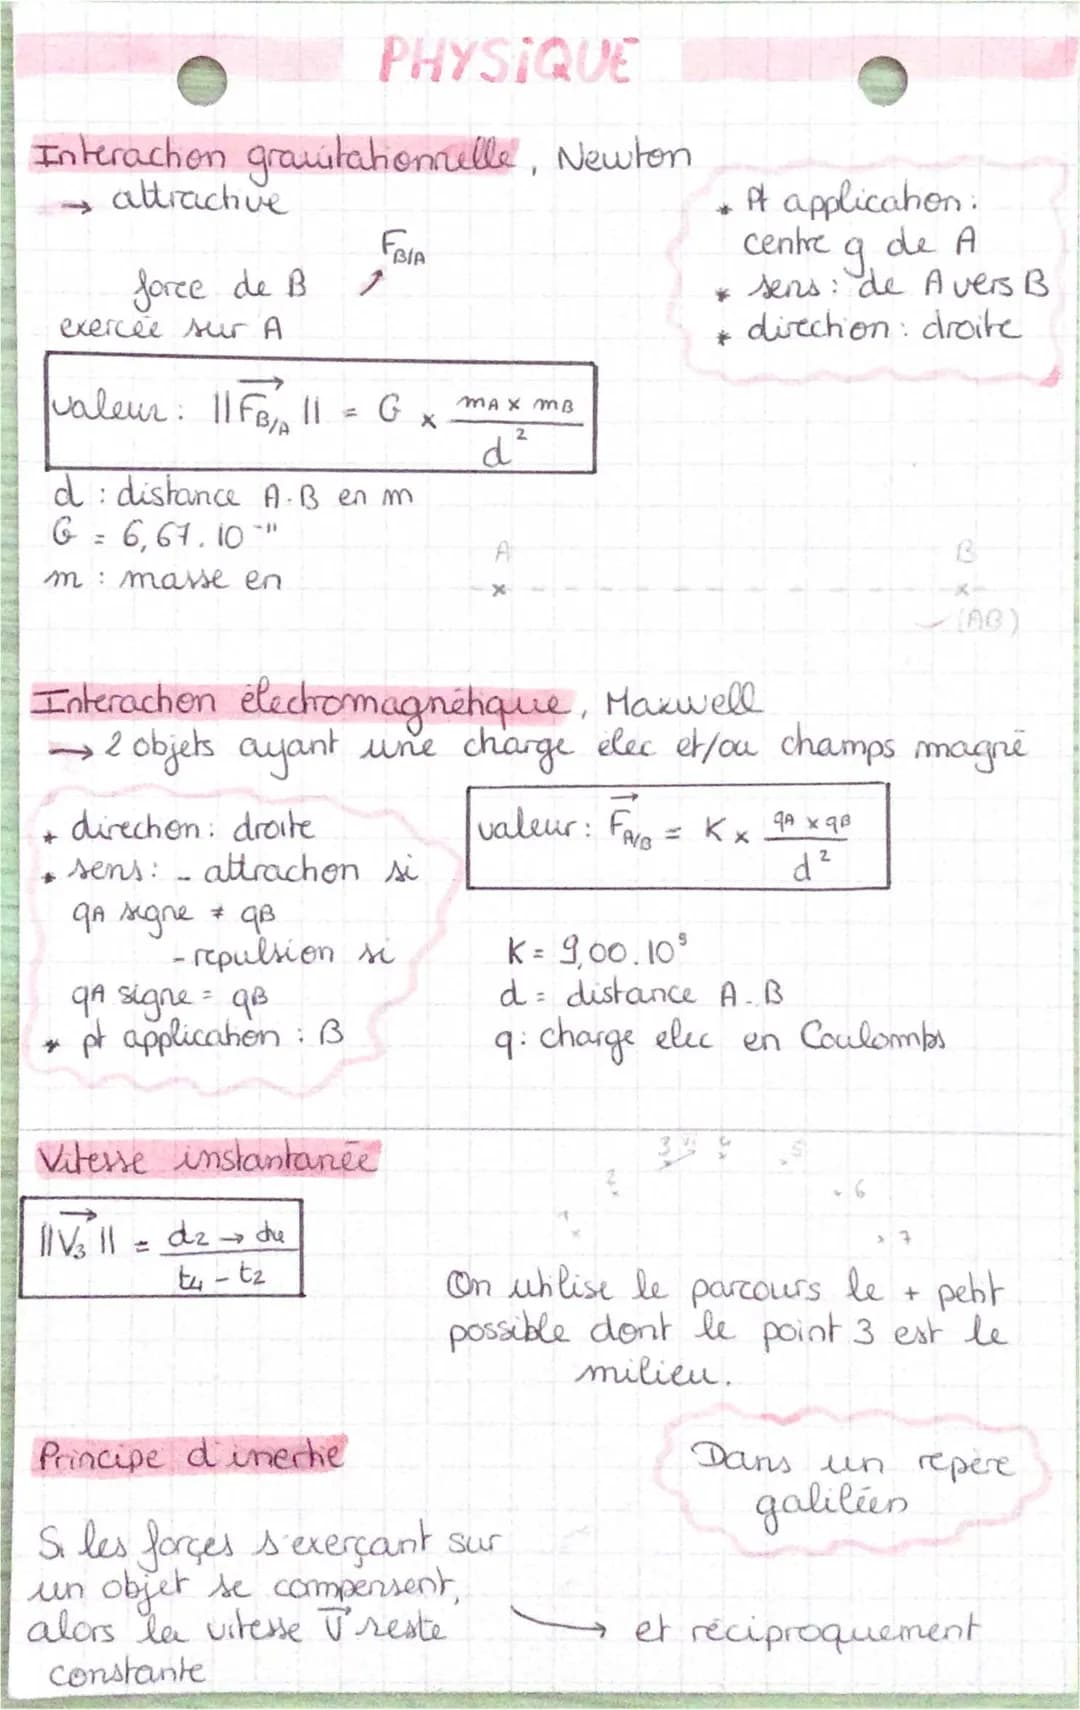 PHYSIQUE
Interaction gravitationnelle, Newton
→ attractive
F B/A
force de B
exercée sur A
* Pt application :
centre g de A
* sens : de A vers B
* direction : droite
valeur : ||F B/A|| = G × (mA × mB) / d²
d : distance A-B en m
G = 6,67.10⁻¹¹
m : masse en
A B
(AB)
Interaction électromagnétique, Maxwell
→ 2 objets ayant une charge élec et/ou champs magné
* direction : droite
* sens : - attraction si
qA signe ≠ qB
- repulsion si
qA signe = qB
* pt application : B
valeur : F A/B = K × (qA × qB) / d²
K = 9,00.10⁹
d = distance A-B
q : charge elec en Coulombs
Vitesse instantanée
||V₃|| = (d2 → d4) / (t4 - t2)
1 2 3 4 5 6 7
On utilise le parcours le + petit
possible dont le point 3 est le
milieu.
Principe d'inertie
Dans un repère
galiléen
Si les forçes s'exerçant sur
un objet se compensent,
alors la vitesse V reste
constante
→ et réciproquement